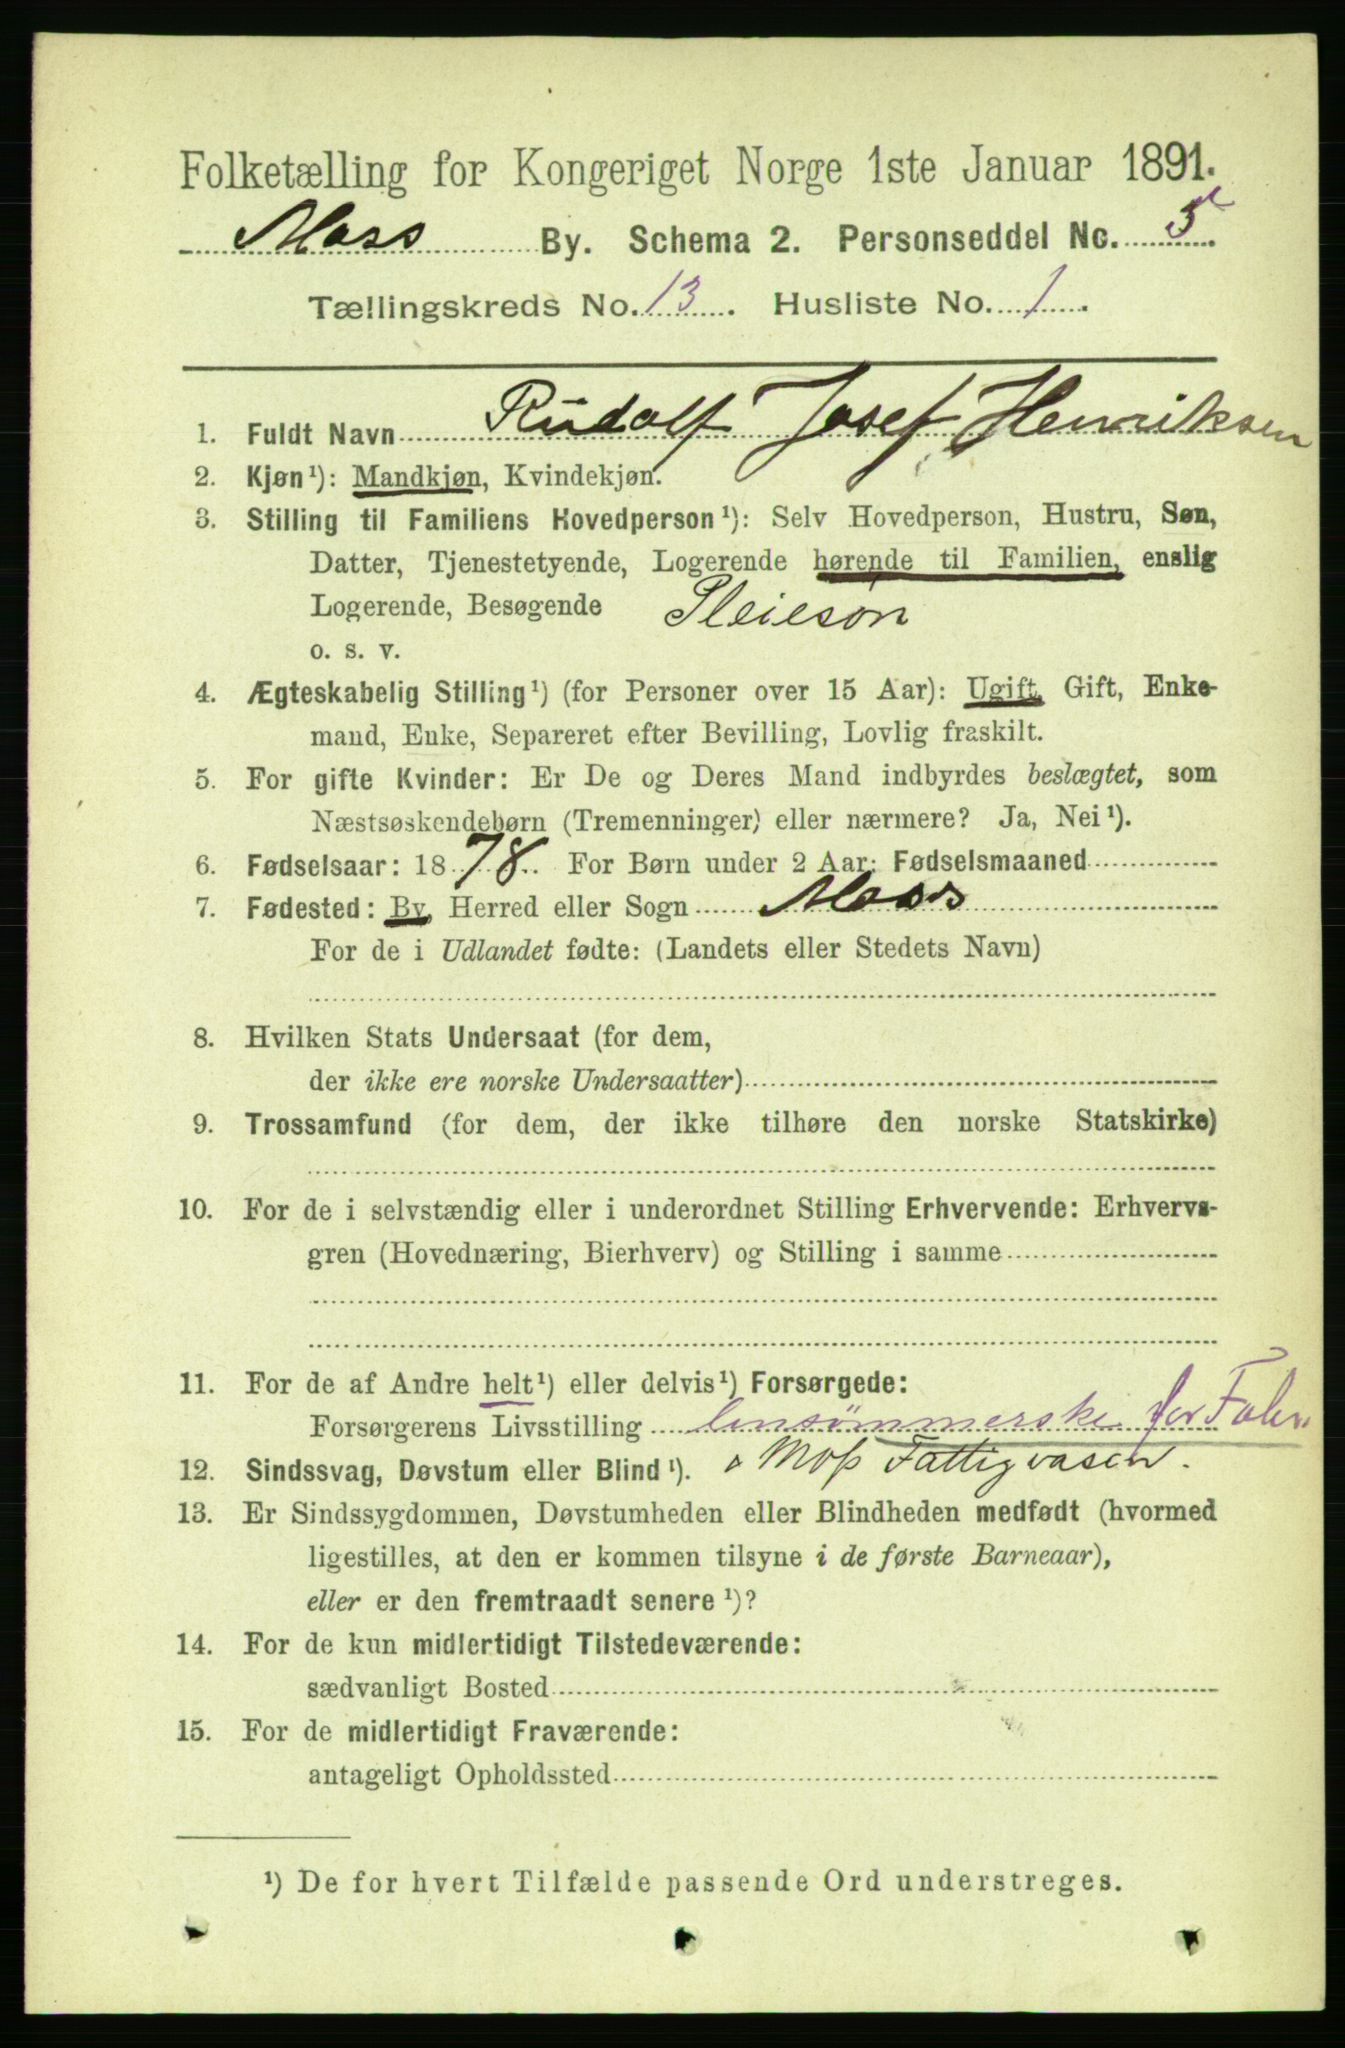 Folketælling for Kongeriget Norge 1ste Januar 1891.
Moss By. Schema 2. Personseddel No. 5
Tællingskreds No. 13. Husliste No. 1.
1. Fuldt Navn Rudolf Josef Henriksen
2. Kjøn¹): Mandkjøn, Kvindekjøn.
3. Stilling til Familiens Hovedperson¹): Selv Hovedperson, Hustru, Søn,
Datter, Tjenestetyende, Logerende hørende til Familien, enslig
Logerende, Besøgende Pleiesøn
o. s. v.
4. Ægteskabelig Stilling¹) (for Personer over 15 Aar): Ugift, Gift, Enke-
mand, Enke, Separeret efter Bevilling, Lovlig fraskilt.
5. For gifte Kvinder: Er De og Deres Mand indbyrdes beslægtet, som
Næstsøskendebørn (Tremenninger) eller nærmere? Ja, Nei¹).
6. Fødselsaar: 1878. For Børn under 2 Aar: Fødselsmaaned
7. Fødested: By, Herred eller Sogn Moss
For de i Udlandet fødte: (Landets eller Stedets Navn)
8. Hvilken Stats Undersaat (for dem,
der ikke ere norske Undersaatter)
9. Trossamfund (for dem, der ikke tilhøre den norske Statskirke)
10. For de i selvstændig eller i underordnet Stilling Erhvervende: Erhvervs-
gren (Hovednæring, Bierhverv) og Stilling i samme
11. For de af Andre helt¹) eller delvis¹) Forsørgede:
Forsørgerens Livsstilling linsømmerske for Folk
12. Sindssvag, Døvstum eller Blind¹). Moss Fattigvæsen.
13. Er Sindssygdommen, Døvstumheden eller Blindheden medfødt (hvormed
ligestilles, at den er kommen tilsyne i de første Barneaar),
eller er den fremtraadt senere¹)?
14. For de kun midlertidigt Tilstedeværende:
sædvanligt Bosted
15. For de midlertidigt Fraværende:
antageligt Opholdssted
¹) De for hvert Tilfælde passende Ord understreges.